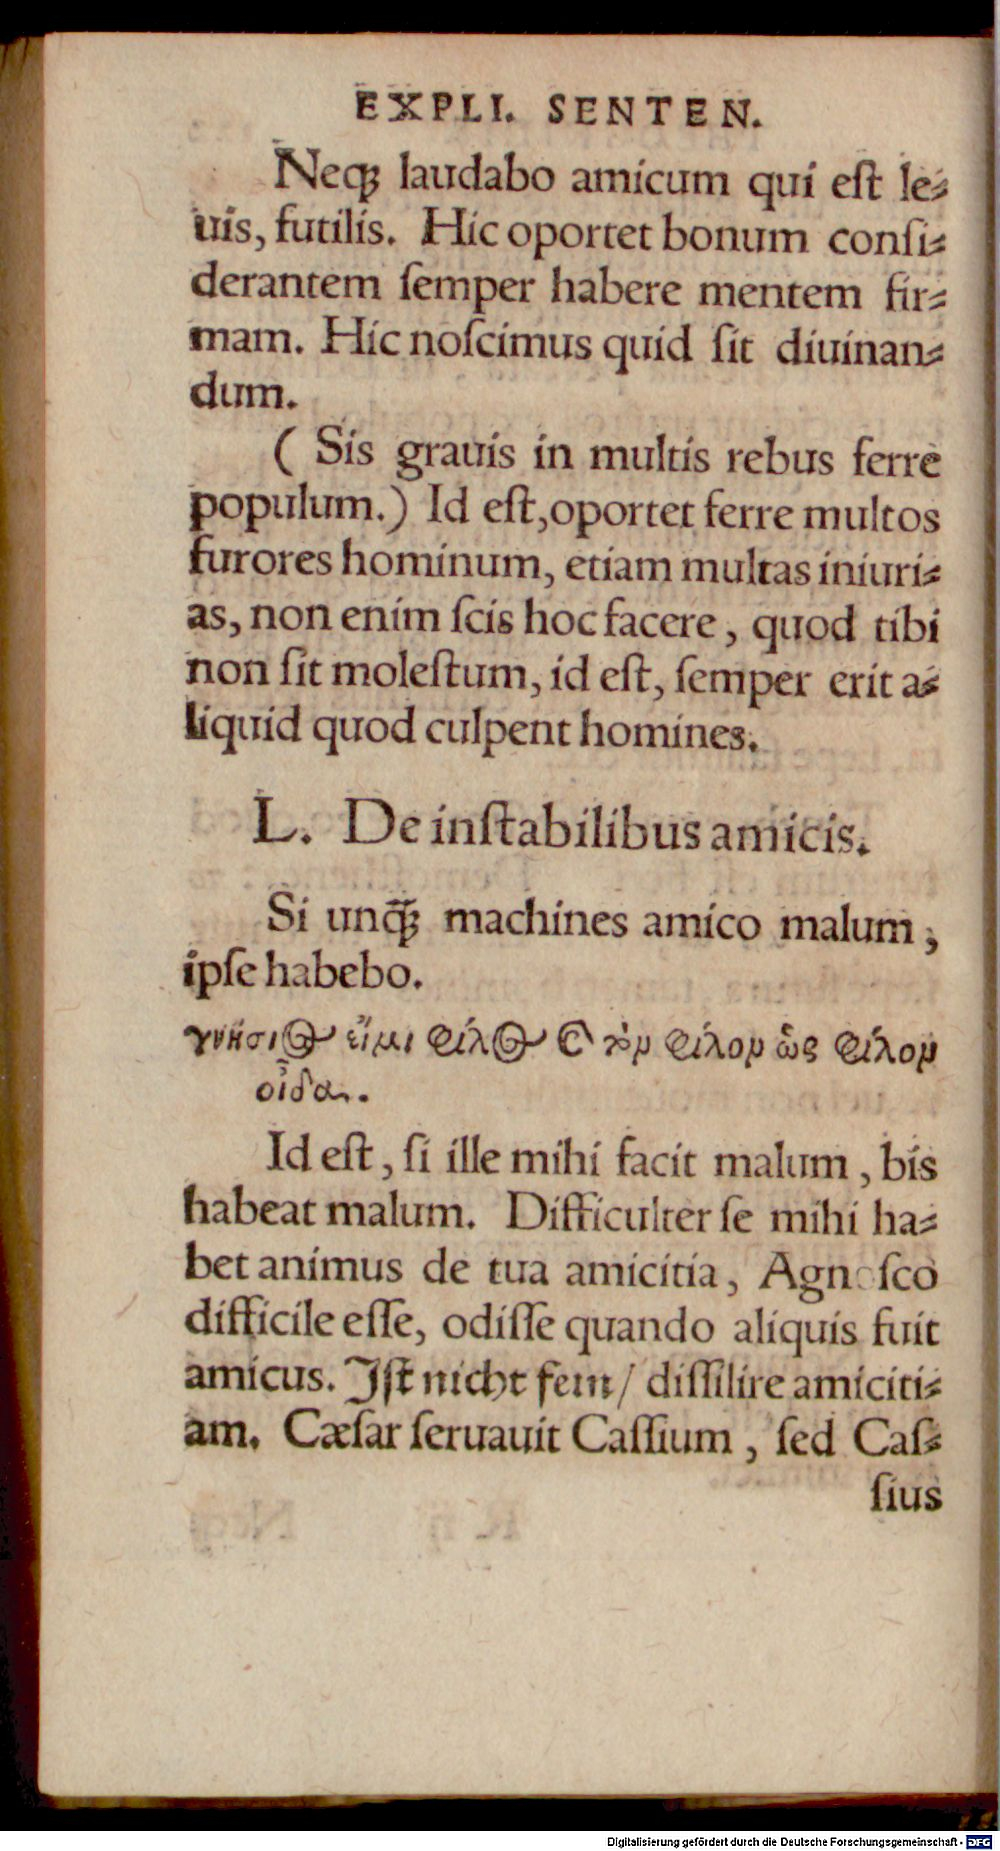 EXPLI. SENTEN.
Neq; laudabo amicum qui eſt le⸗
uis, futilis. Hic oportet bonum conſi⸗
derantem ſemper habere mentem fir⸗
mam. Hic noſcimus quid ſit diuinan⸗
dum.
( Sis grauis in multis rebus ferre
populum.) Id eſt, oportet ferre multos
furores hominum, etiam multas iniuri⸗
as, non enim ſcis hoc facere, quod tibi
non ſit moleſtum, id eſt, ſemper erit a⸗
liquid quod culpent homines.
L. De inſtabilibus amicis.
Si unq̃; machines amico malum,
ipſe habebo.
γνήσιος εἰμι φίλος καὶ τὸν φίλον ὡς φίλον
οἶδα.
Id eſt, ſi ille mihi facit malum, bis
habeat malum. Difficulter ſe mihi ha⸗
bet animus de tua amicitia, Agnoſco
difficile eſſe, odiſſe quando aliquis fuit
amicus. Iſt nicht fein / diſſilire amiciti⸗
am. Cæſar ſeruauit Caſſium, ſed Caſ⸗
ſius
Digitalisierung gefördert durch die Deutsche Forschungsgemeinschaft - DFG